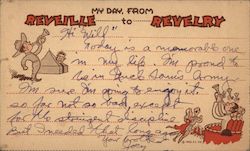 MY DAY, FROM
REVEILLE to REVELRY
Hi "Will"
Today is a memorable one
in my life. I'm proud to
be in Uncle Sam's Army.
I'm sure I'm going to enjoy it.
so far not so bad, except
for the stringent discipline
But I needed that long ago
Your brother